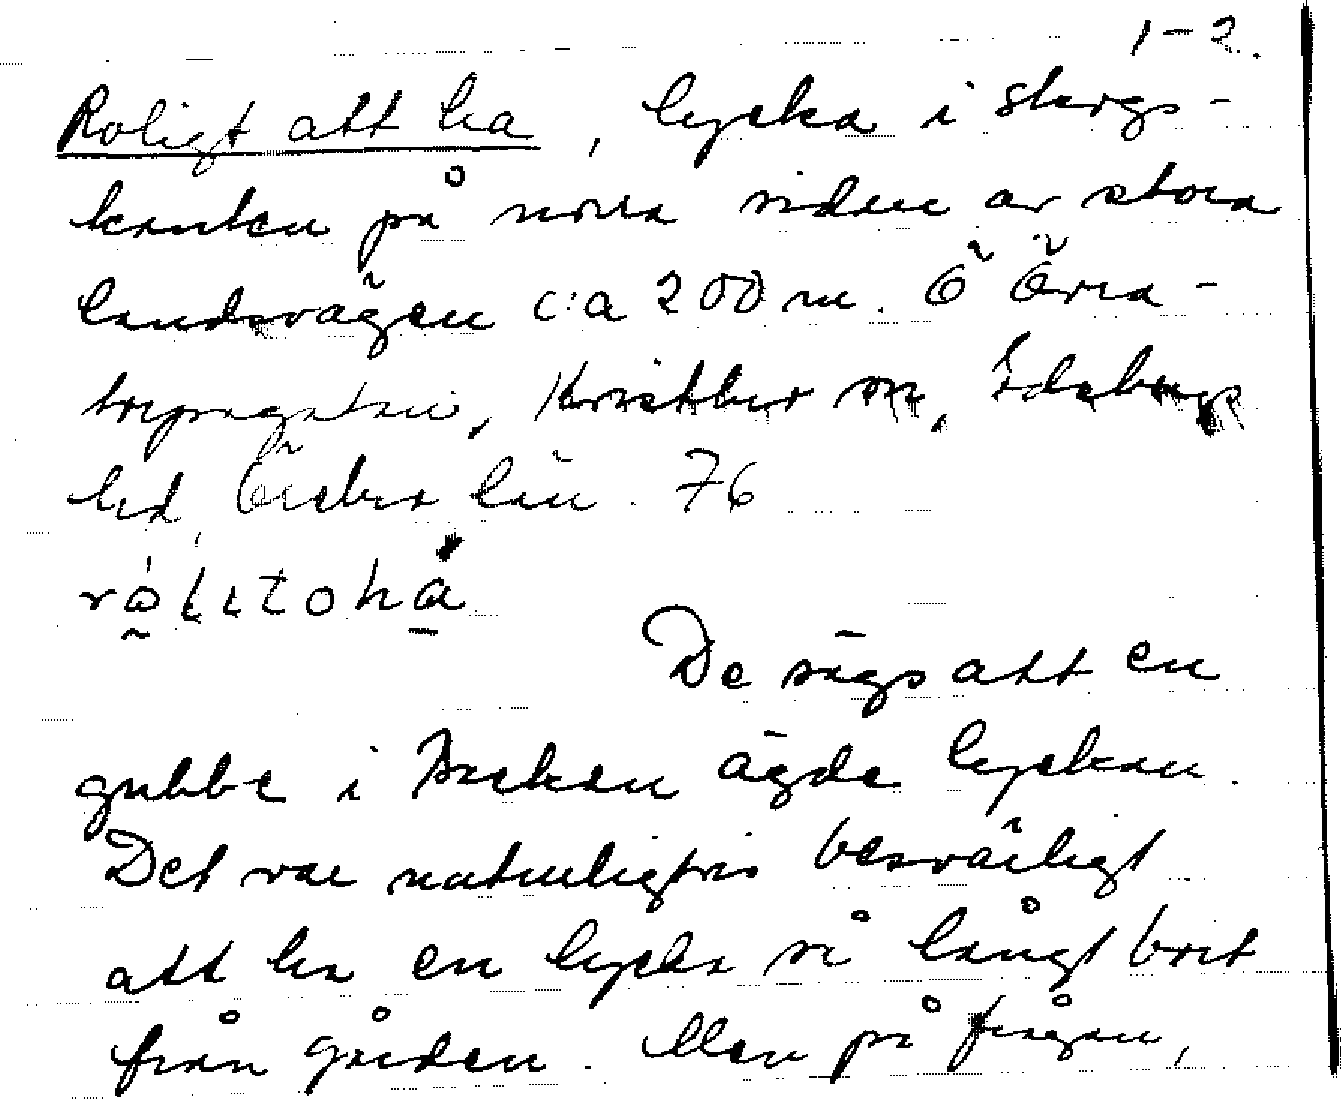 1-2.
Roligt att ha, lycka i skogs-
kanten på norra sidan av stora
landsvägen c:a 200 m. Ö Övra-
torpsgatan, Kvistbro sn, Edsbergs
hd, Örebro län. 76
De sägs att en
gubbe i Backen ägde lyckan.
Det var naturligtvis besvärligt
att ha en lycka så långt bort
från gården. Men på frågan,